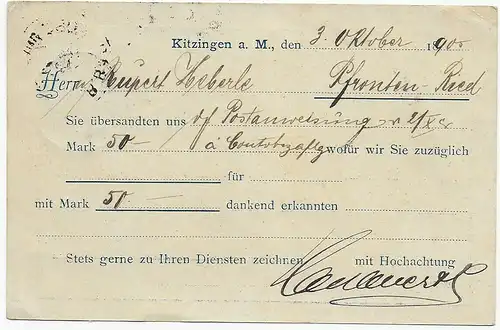 Kitzingen a. M., den 3. Oktober 1900
Herrn Rupert Heberle Pfronten-Ried
Sie übersandten uns p. Postanweisung v. 2/X cr
Mark 50 — à Contozahlg wofür wir Sie zuzüglich
für
mit Mark 50 — dankend erkannten
Stets gerne zu Ihren Diensten zeichnen mit Hochachtung